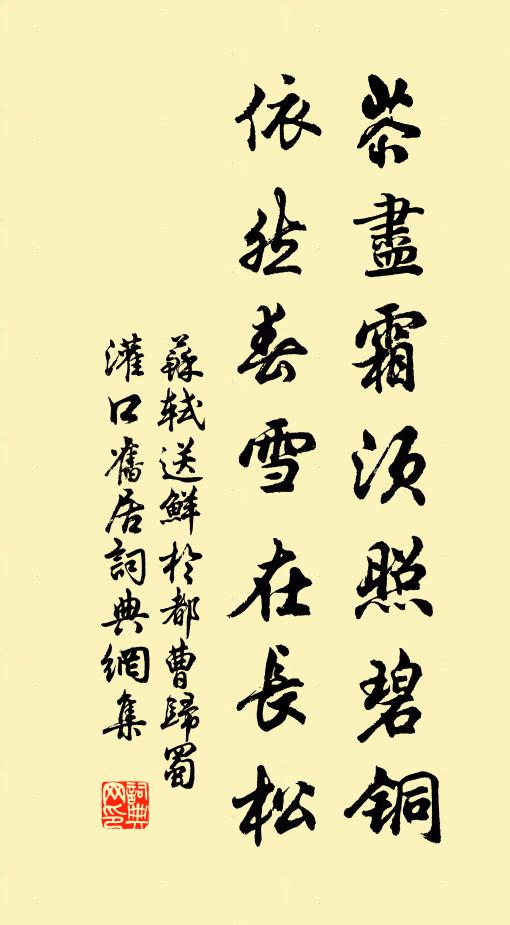 茶盡霜须照碧铜
依然春雪在長松
蘇軾送鮮於都曹歸蜀
灌口舊居詞典網集
詞典
网印